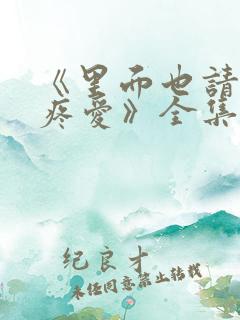 《里而也請
疼愛》全集
纪良才
未经同意禁止转载